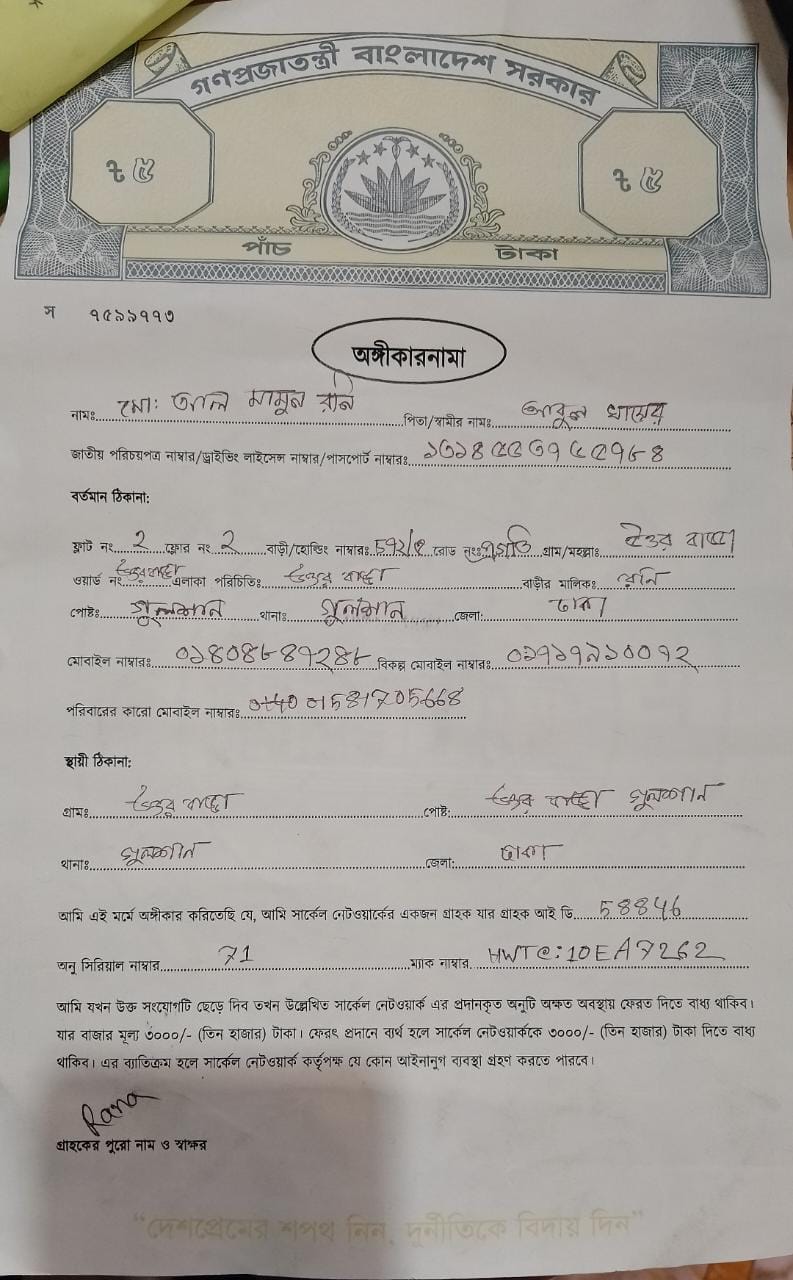 গণপ্রজাতন্ত্রী বাংলাদেশ সরকার
৳ ৫ ৳ ৫
পাঁচ টাকা
স ৭৫৯৯৭৭৩
অঙ্গীকারনামা
নামঃ মো: আল মামুন রনি পিতা/স্বামীর নামঃ আবুল খায়ের
জাতীয় পরিচয়পত্র নাম্বার/ড্রাইভিং লাইসেন্স নাম্বার/পাসপোর্ট নাম্বারঃ
বর্তমান ঠিকানা:
ফ্লাট নং 2 ফ্লোর নং ২ বাড়ী/হোল্ডিং নাম্বারঃ রোড নংঃ প্রগতি গ্রাম/মহল্লাঃ উত্তর বাড্ডা
ওয়ার্ড নংঃ উত্তর বাড্ডা এলাকা পরিচিতিঃ উত্তর বাড্ডা বাড়ীর মালিকঃ রনি
পোষ্টঃ গুলশান থানাঃ গুলশান জেলা: ঢাকা
মোবাইল নাম্বারঃ ০১৪০৪৮৪৭২৪৮ বিকল্প মোবাইল নাম্বারঃ ০১৭১৭৯১০০৭২
পরিবারের কারো মোবাইল নাম্বারঃ 01581705668
স্থায়ী ঠিকানা:
গ্রামঃ উত্তর বাড্ডা পোষ্ট: উত্তর বাড্ডা গুলশান
থানাঃ গুলশান জেলা: ঢাকা
আমি এই মর্মে অঙ্গীকার করিতেছি যে, আমি সার্কেল নেটওয়ার্কের একজন গ্রাহক যার গ্রাহক আই ডি 58846
অনু সিরিয়াল নাম্বার 71 ম্যাক নাম্বার HWTC:10EA7262
আমি যখন উক্ত সংযোগটি ছেড়ে দিব তখন উল্লেখিত সার্কেল নেটওয়ার্ক এর প্রদানকৃত অনুটি অক্ষত অবস্থায় ফেরত দিতে বাধ্য থাকিব।
যার বাজার মূল্য ৩০০০/- (তিন হাজার) টাকা। ফেরৎ প্রদানে ব্যর্থ হলে সার্কেল নেটওয়ার্ককে ৩০০০/- (তিন হাজার) টাকা দিতে বাধ্য
থাকিব। এর ব্যতিক্রম হলে সার্কেল নেটওয়ার্ক কর্তৃপক্ষ যে কোন আইনানুগ ব্যবস্থা গ্রহণ করতে পারবে।
Rana
গ্রাহকের পুরো নাম ও স্বাক্ষর
“দেশপ্রেমের শপথ নিন, দুর্নীতিকে বিদায় দিন”